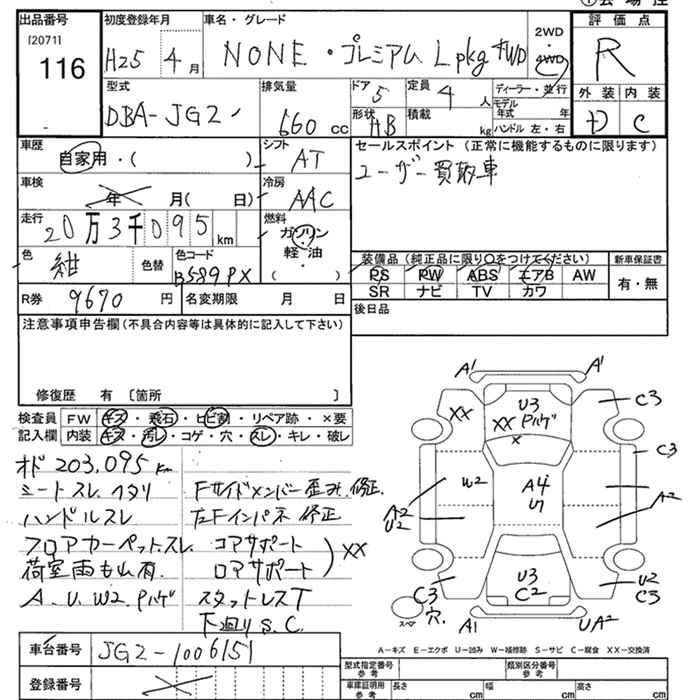 出品番号 [2071] 116
初度登録年月 H25 4月
車名・グレード NONE・プレミアム L pkg 4WD
2WD・4WD
評価点 R
外装 内装 C
型式 DBA-JG2
排気量 660 cc
ドア 5 形状 HB
定員 4人 積載 kg
ディーラー・並行
モデル年式 年
ハンドル 左・右
車歴 自家用・( )
シフト AT
車検 年 月( 日)
冷房 AAC
走行 20万3千095 km
燃料 ガソリン 軽・油 ( )
色 紺 色替
色コード B589PX
R券 9670円
名変期限 月 日
セールスポイント (正常に機能するものに限ります)
ユーザー買取車
装備品 (純正品に限り○をつけてください)
PS PW ABS エアB AW
SR ナビ TV カワ
新車保証書 有・無
後日品
注意事項申告欄 (不具合内容等は具体的に記入して下さい)
修復歴 有 〔箇所 〕
検査員記入欄
FW キズ・飛石・ヒビ割・リペア跡・×要
内装 キズ・汚レ・コゲ・穴・スレ・キレ・破レ
オド 203,095km
シートスレ、ヘタリ
ハンドルスレ
フロアカーペットスレ
荷室雨もり有
A.U.W2.Pハゲ
Fサイドメンバー歪み、修正
左Fインパネ修正
コアサポート
ロアサポート ) XX
スタットレスT
下廻りS.C.
A1 A1
XX U3 XX Pハゲ × C3
C3
A2 U2 W2 A4 U7 A2
U3 C2
C3 穴 U2 C3
スペア A1 UA2
A-キズ E-エクボ U-凹み W-補修跡 S-サビ C-腐食 XX-交換済
車台番号 JG2-1006151
登録番号
型式指定番号 参考
類別区分番号 参考
車庫証明用 参考 長さ cm 幅 cm 高さ cm